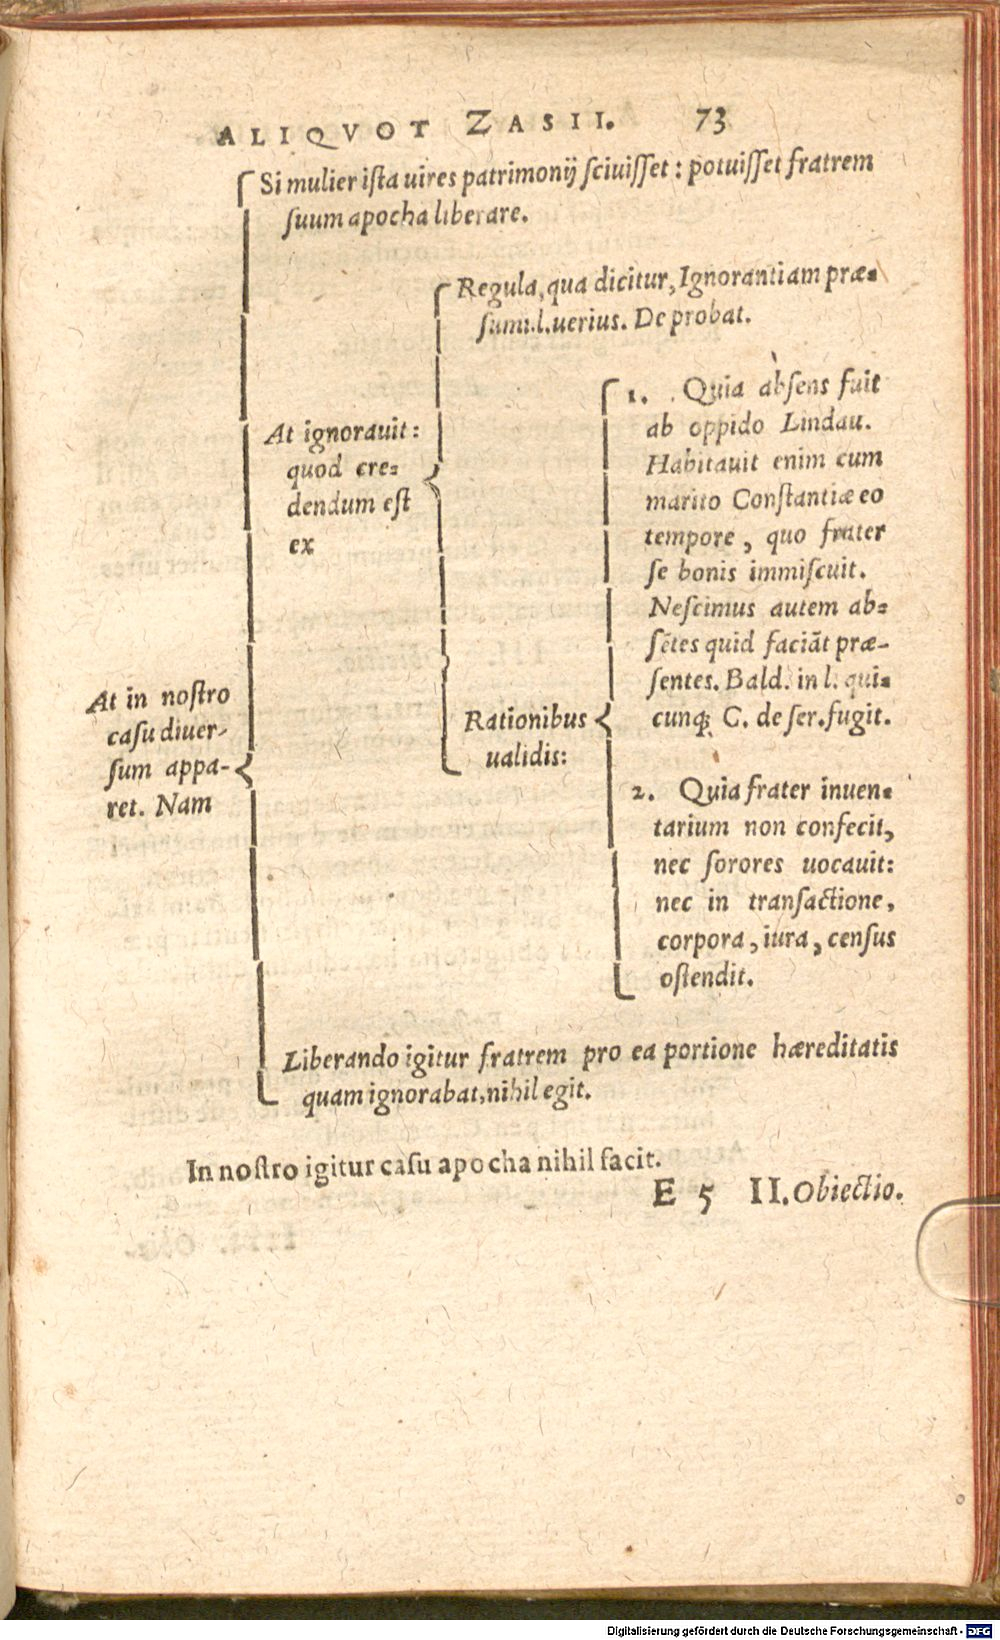 ALIQVOT ZASII. 73
Si mulier iſta uires patrimonij ſciuiſſet : potuiſſet fratrem
ſuum apocha liberare.
At in nostro
caſu diuer-
ſum appa-
ret. Nam
At ignorauit :
quod cre-
dendum eſt
ex
Regula, qua dicitur, Ignorantiam præ-
ſumi. l. uerius. De probat.
Rationibus
ualidis:
1. Quia abſens fuit
ab oppido Lindau.
Habitauit enim cum
marito Conſtantiæ eo
tempore, quo frater
ſe bonis immiſcuit.
Neſcimus autem ab-
ſẽtes quid faciãt præ-
ſentes. Bald. in l. qui-
cunqꝫ C. de ſer. fugit.
2. Quia frater inuen-
tarium non confecit,
nec ſorores uocauit:
nec in tranſactione,
corpora, iura, cenſus
oſtendit.
Liberando igitur fratrem pro ea portione hæreditatis
quam ignorabat, nihil egit.
In noſtro igitur caſu apocha nihil facit.
E 5 II. Obiectio.
Digitalisierung gefördert durch die Deutsche Forschungsgemeinschaft - DFG